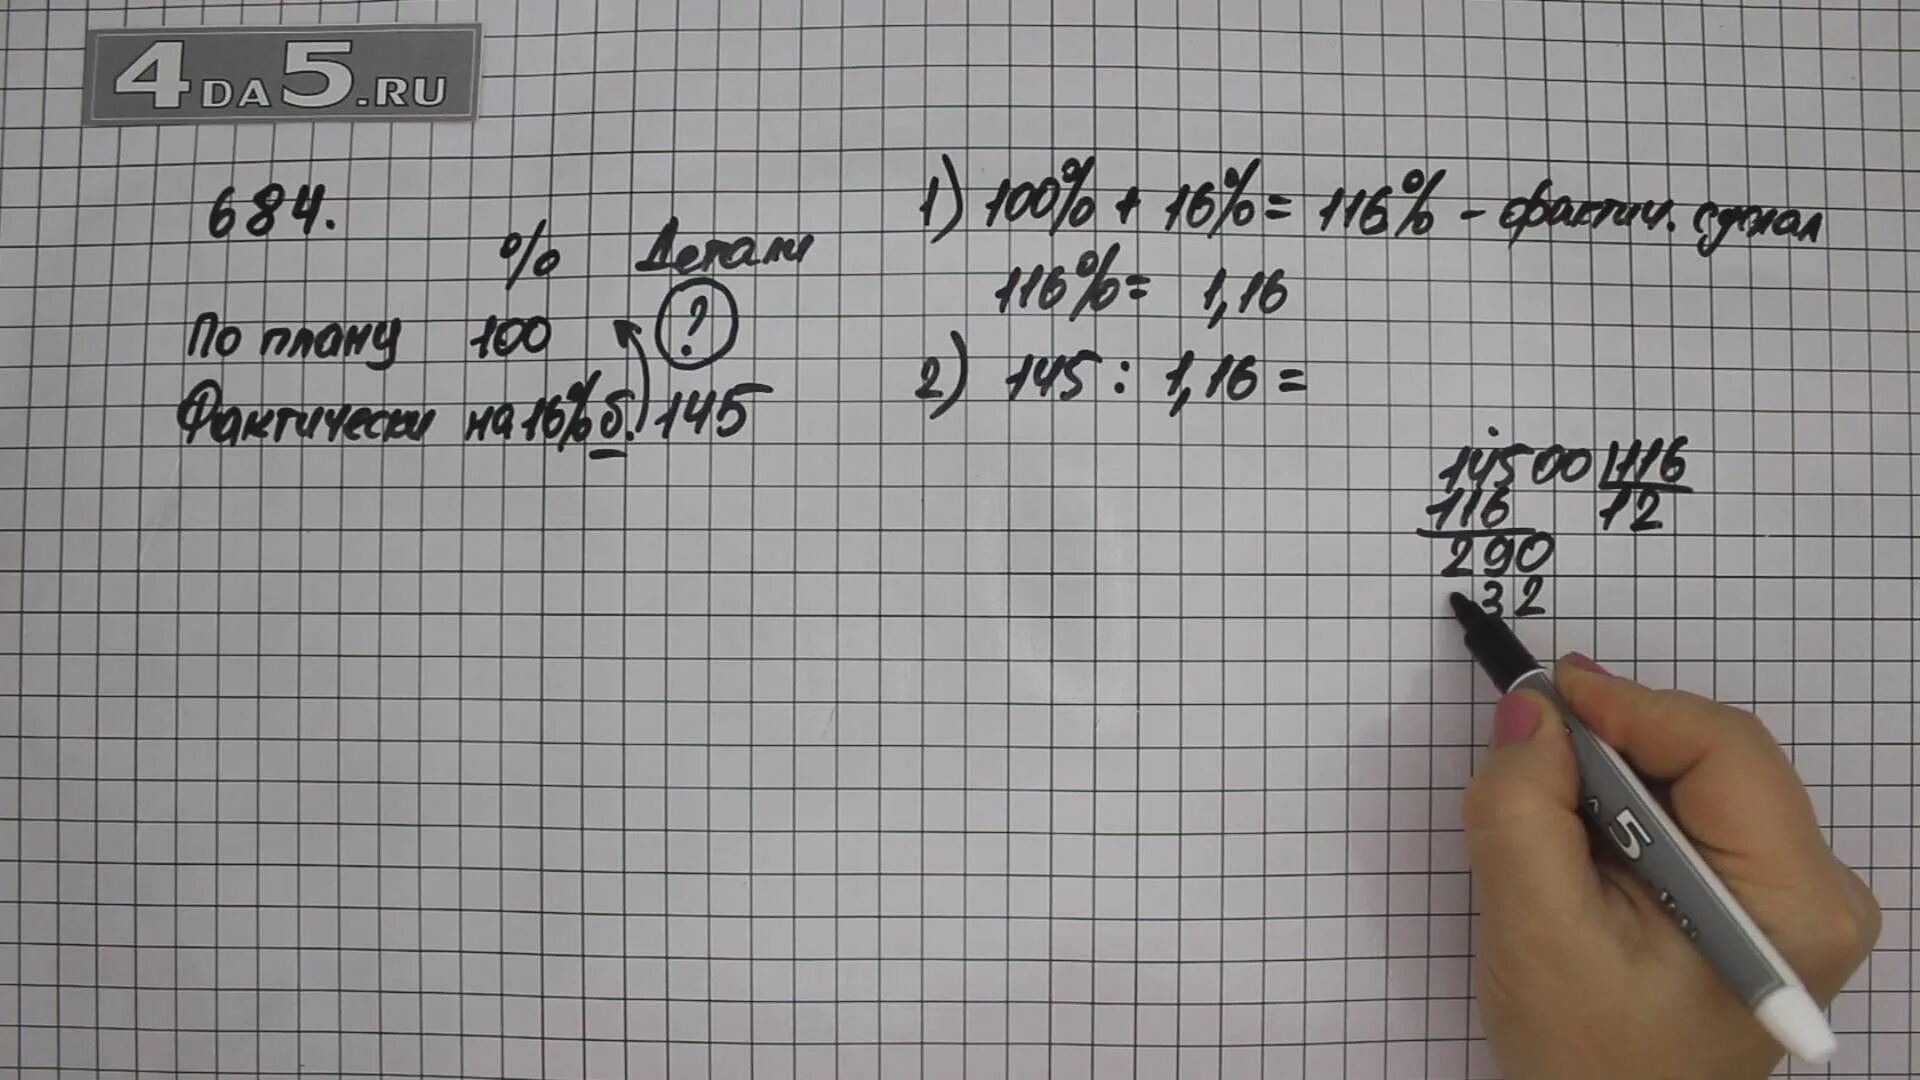 4DA5.RU
684.
% Детали
По плану 100 ?
Фактически на 16% б. 145
1) 100% + 16% = 116% - фактич. сделал
116% = 1,16
2) 145 : 1,16 =
14500 116
116 12
290
32
5